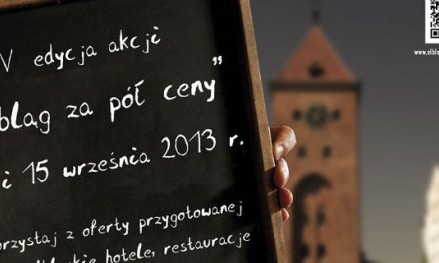 V edycja akcji
bląg za pół ceny”
i 15 września 2013 r.
rzystaj z oferty przygotowanej
hotele, restauracje
www.elblą